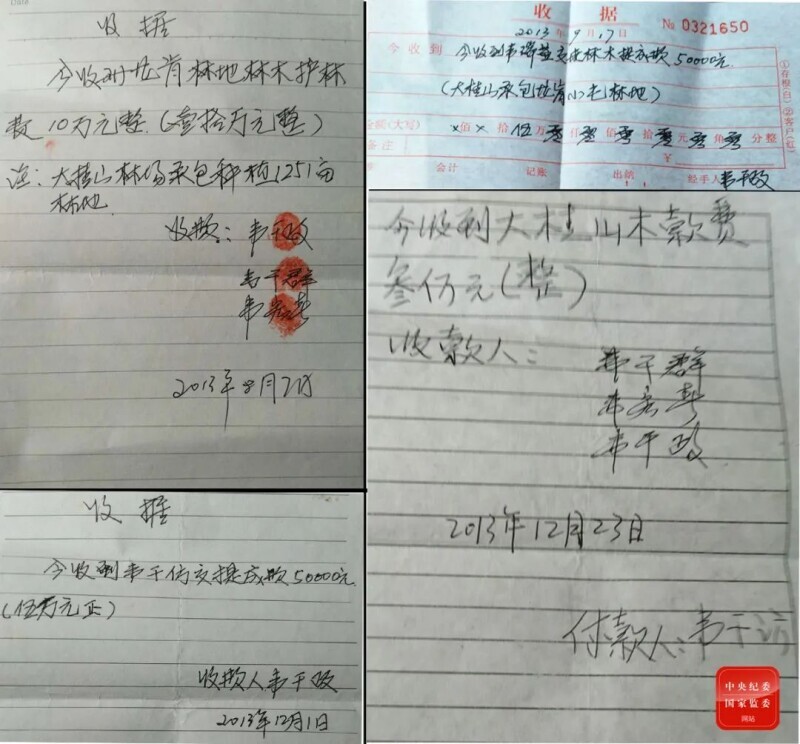 收据
今收到岜肯林地林木护林
款10万元整.(壹拾万元整)
注:大桂山林场承包种植1251亩
林地.
收款:韦干政
韦干群
韦宏春
2013年8月2日
收据
2013年9月17日
№ 0321650
今收到 今收到韦 交 林木提成款50000元
(大桂山承包 林地)
金额(大写) ×佰×拾伍万零仟零佰零拾零元零角零分整
备注 ¥
会计 记账 出纳 经手人韦干政
①存根(白) ②客户(红)
今收到大桂山木款费
叁仟元(整)
收款人:
韦干群
韦宏春
韦干政
2013年12月23日
付款人:韦干访
收据
今收到韦干 交提成款50000元
(伍万元正)
收款人韦干政
2013年12月1日
中央纪委
国家监委
网站